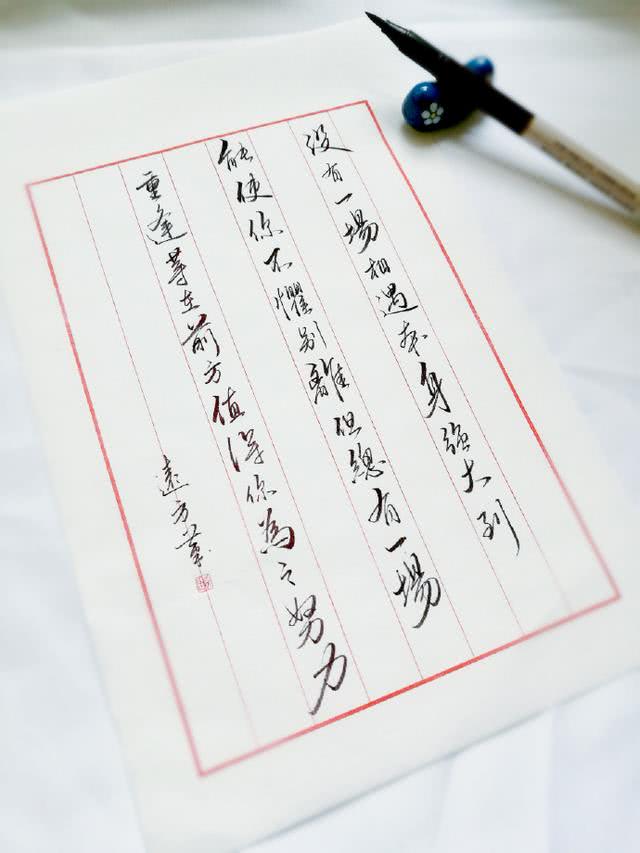 没有一場相遇本身強大到
能使你不懼别離但總有一場
重逢等在前方值得你為之努力
遠方